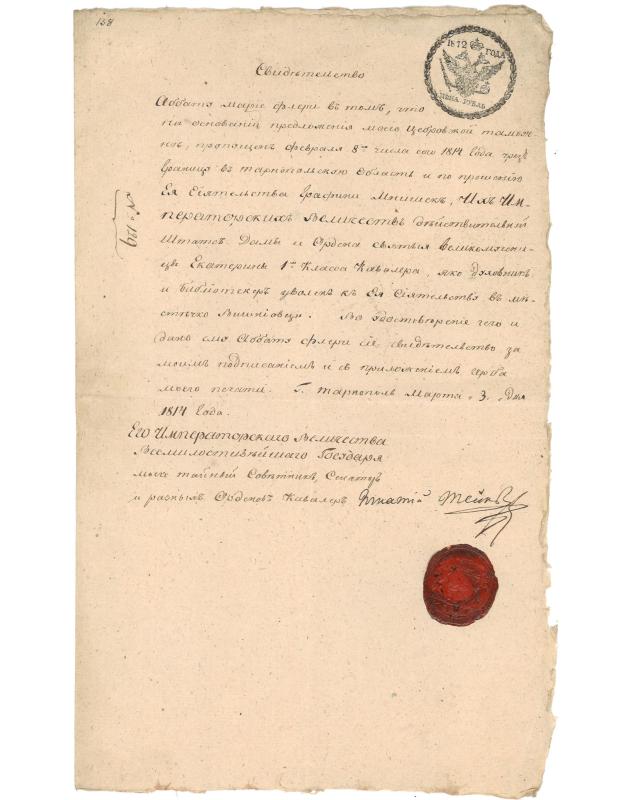 158
1812 ГОДА
ЦЕНА РУБЛЬ
Свидѣтельство
Аббату Марiе Флери въ томъ, что
на основанiи предложенiя моего Цебровской таможнею
пропущенъ февраля 8го числа сего 1814 года чрезъ
границу въ тарнопольскую область и по прошенiю
Ея Сiятельства Графини Мнишекъ, Ихъ Им-
ператорскихъ Величествъ дѣйствительной
Штатсъ Дамы и Ордена святыя Великомучени-
цы Екатерины 1го Класса Кавалера, яко духовникъ
и библiотекеръ уволенъ къ Ея Сiятельству въ мѣ-
стѣчко Вишнiовецъ. Во удостовѣренiе чего и
дано ему Аббату Флери сiе свидѣтельство за
моимъ подписанiемъ и съ приложенiемъ герба
моего печати. Г. Тарнополь Марта 3 дня
1814 года.
Его Императорскаго Величества
Всемилостивѣйшаго Государя
моего тайный Совѣтникъ, Сенаторъ
и разныхъ Орденовъ Кавалеръ Игнатiй Тейльсъ
№ 129